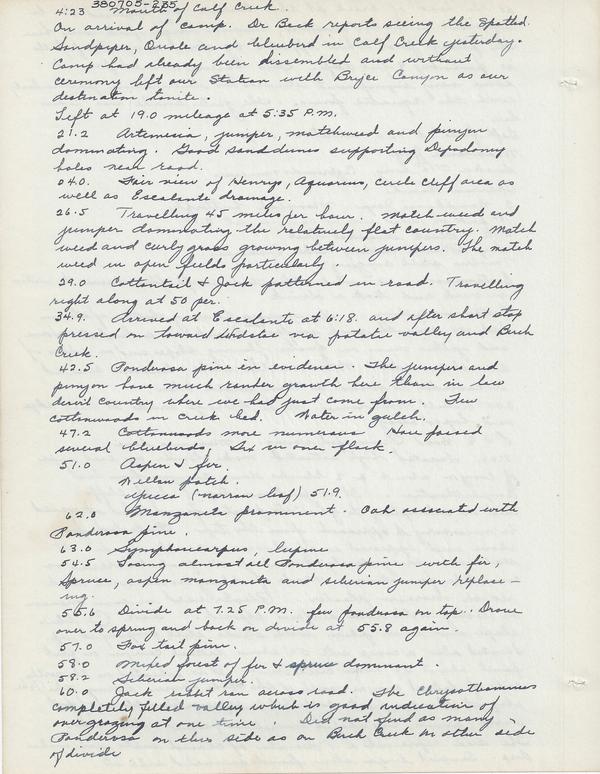 380705-285
4:23 Mouth of Calf Creek.
On arrival of camp. Dr Beck reports seeing the Spotted
Sandpiper, Quale and bluebird in Calf Creek yesterday.
Camp had already been dissembled and without
ceremony left our Station with Bryce Canyon as our
destination tonite.
Left at 19.0 mileage at 5:35 P.M.
21.2 Artemesia, juniper, matchweed and pinyon
dominating. Good sand dunes supporting Depodomy
holes near road.
24.0. Fair view of Henrys, Aquarius, circle cliff area as
well as Escalante drainage.
26.5 Travelling 45 miles per hour. Match weed and
juniper dominating the relatively flat country. Match
weed and curly grass growing between junipers. The match
weed in open fields particularly.
29.0 Cottontail & Jack patterned in road. Travelling
right along at 50 per.
34.9. Arrived at Escalante at 6:18. and after short stop
pressed on toward via potatoe valley and Birch
Creek.
42.5 Ponderosa pine in evidence. The junipers and
pinyon have much ranker growth here than in low
desert country where we had just come from. Few
cottonwoods in creek bed. Water in gulch.
47.2 Cottonwoods more numerous Have passed
several bluebirds, Six in one flock.
51.0 Aspen & fir.
Willow patch.
Yucca (narrow leaf) 51.9.
62.0 Manzaneta prominent. Oak associated with
Ponderosa pine.
63.0 Symphoricarpus, lupine
54.5 Losing almost all Ponderosa pine with fir,
Spruce, aspen manzaneta and siberian juniper replace-
ing.
55.6 Divide at 7.25 P.M. few pondarosa on top. Drove
over to spring and back on divide at 55.8 again.
57.0 Fox tail pine.
58.0 Mixed forest of fir & spruce dominant.
58.2 Siberian juniper.
60.0 Jack rabbit ran across road. The Chrysothamnus
completely filled valley which is good indication of
overgrazing at one time. Did not find as many
Ponderosa on this side as on Birch Creek or other side
of divide